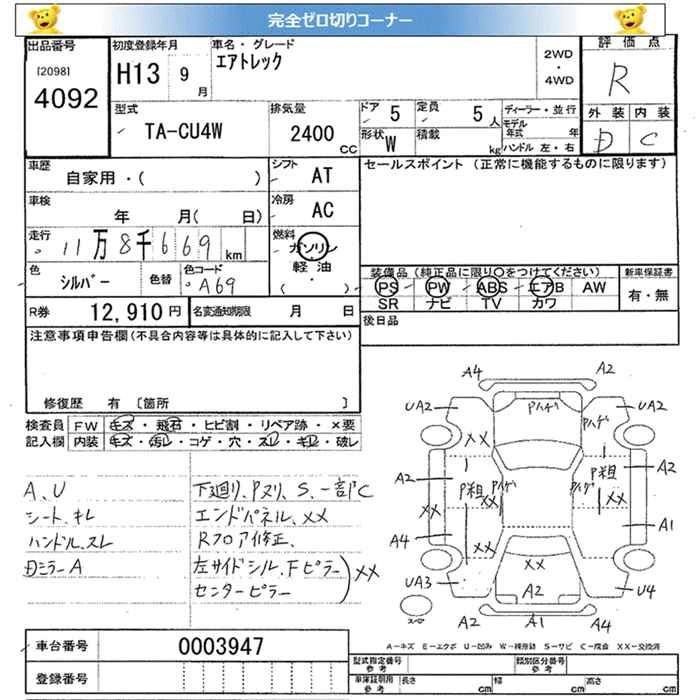 完全ゼロ切りコーナー
出品番号
[2098]
4092
初度登録年月
H13 9月
車名・グレード
エアトレック
2WD
・
4WD
評価点
R
外装 内装
D C
型式
TA-CU4W
排気量
2400 CC
ドア 5
定員 5人
形状 W
積載 kg
ディーラー・並行
モデル年式 年
ハンドル 左・右
車歴
自家用・( )
シフト AT
車検
年 月( 日)
冷房 AC
走行
11万8千669 km
燃料
ガソリン
軽油
( )
色 シルバー
色替
色コード A69
R券 12,910円
名変通知期限 月 日
セールスポイント (正常に機能するものに限ります)
装備品 (純正品に限り○をつけてください)
PS PW ABS エアB AW
SR ナビ TV カワ
新車保証書
有・無
後日品
注意事項申告欄(不具合内容等は具体的に記入して下さい)
修復歴 有 [箇所
検査員記入欄
FW キズ・飛石・ヒビ割・リペア跡・×要
内装 キズ・汚レ・コゲ・穴・スレ・キレ・破レ
A、U
シート、キレ
ハンドル、スレ
ミラーA
下廻り、Pヌリ、S、一部C
エンドパネル、XX
Rフロア修正、
左サイドシル、Fピラー
センターピラー
XX
A4 A2
UA2 Pハゲ Pハゲ UA2
XX
A2 P粗 Pハゲ Pハゲ P粗 A2
XX XX XX
A4 A1
XX XX
UA3 A2 U4
A2 A1 A4
スペア
A−キズ E−エクボ U−凹み W−補修跡 S−サビ C−腐食 XX−交換済
車台番号 0003947
登録番号
型式指定番号 参考
類別区分番号 参考
車庫証明用 参考
長さ cm 幅 cm 高さ cm